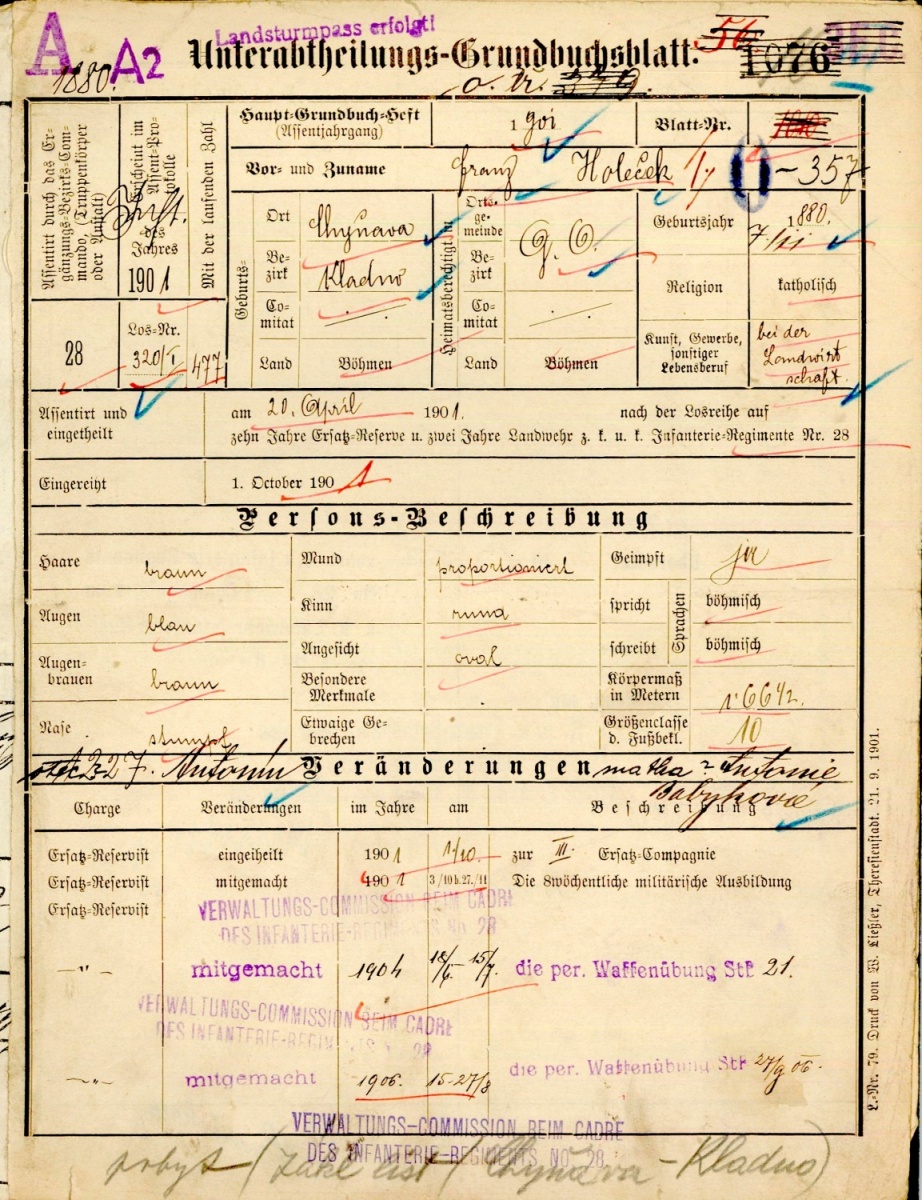 Landsturmpass erfolgt!
A A2
1880.
Unterabtheilungs-Grundbuchsblatt.
56 1076
Haupt-Grundbuch-Heft
(Assentjahrgang)
1901
Blatt-Nr.
Vor- und Zuname
Franz Holeček
0-357
Assentirt durch das Ergänzungs-Bezirks-Commando, (Truppenkörper oder Anstalt)
Erscheint im Assent-Protokolle
des Jahres
1901
Mit der laufenden Zahl
28
Los-Nr.
320/I
477
Geburts-
Ort Chynava
Bezirk Kladno
Comitat
Land Böhmen
Heimatsberechtigt in
Ortsgemeinde
Bezirk
Comitat
Land Böhmen
Geburtsjahr 1880.
7/11
Religion katholisch
Kunst, Gewerbe, sonstiger Lebensberuf
bei der
Landwirt
schaft.
Assentirt und eingetheilt
am 20. April 1901. nach der Losreihe auf
zehn Jahre Ersatz-Reserve u. zwei Jahre Landwehr z. k. u. k. Infanterie-Regimente Nr. 28
Eingereiht 1. October 1901
Persons-Beschreibung
Haare braun
Augen blau
Augenbrauen braun
Nase stumpf
Mund proportioniert
Kinn rund
Angesicht oval
Besondere Merkmale
Etwaige Gebrechen
Geimpft ja
Sprachen
spricht böhmisch
schreibt böhmisch
Körpermaß in Metern 1·66½.
Größenclasse d. Fußbekl. 10
Antonín
Veränderungen
matka Antonie
Charge
Veränderungen
im Jahre
am
Beschreibung
Ersatz-Reservist eingetheilt 1901 1/10. zur III. Ersatz-Compagnie
Ersatz-Reservist mitgemacht 1901 3/10 b. 27./11 Die 8wöchentliche militärische Ausbildung
Ersatz-Reservist
VERWALTUNGS-COMMISSION BEIM CADRE
DES INFANTERIE-REGIMENTS No 28
—"— mitgemacht 1904 18/6. 15/7. die per. Waffenübung StP 21.
VERWALTUNGS-COMMISSION BEIM CADRE
DES INFANTERIE-REGIMENTS No 28
—"— mitgemacht 1906. 15-27/8 die per. Waffenübung StP 27/9 06.
VERWALTUNGS-COMMISSION BEIM CADRE
DES INFANTERIE-REGIMENTS No 28
pobyt (Chynava - Kladno)
L.-Nr. 79. Druck von W. Ließler, Theresienstadt. 21. 9. 1901.